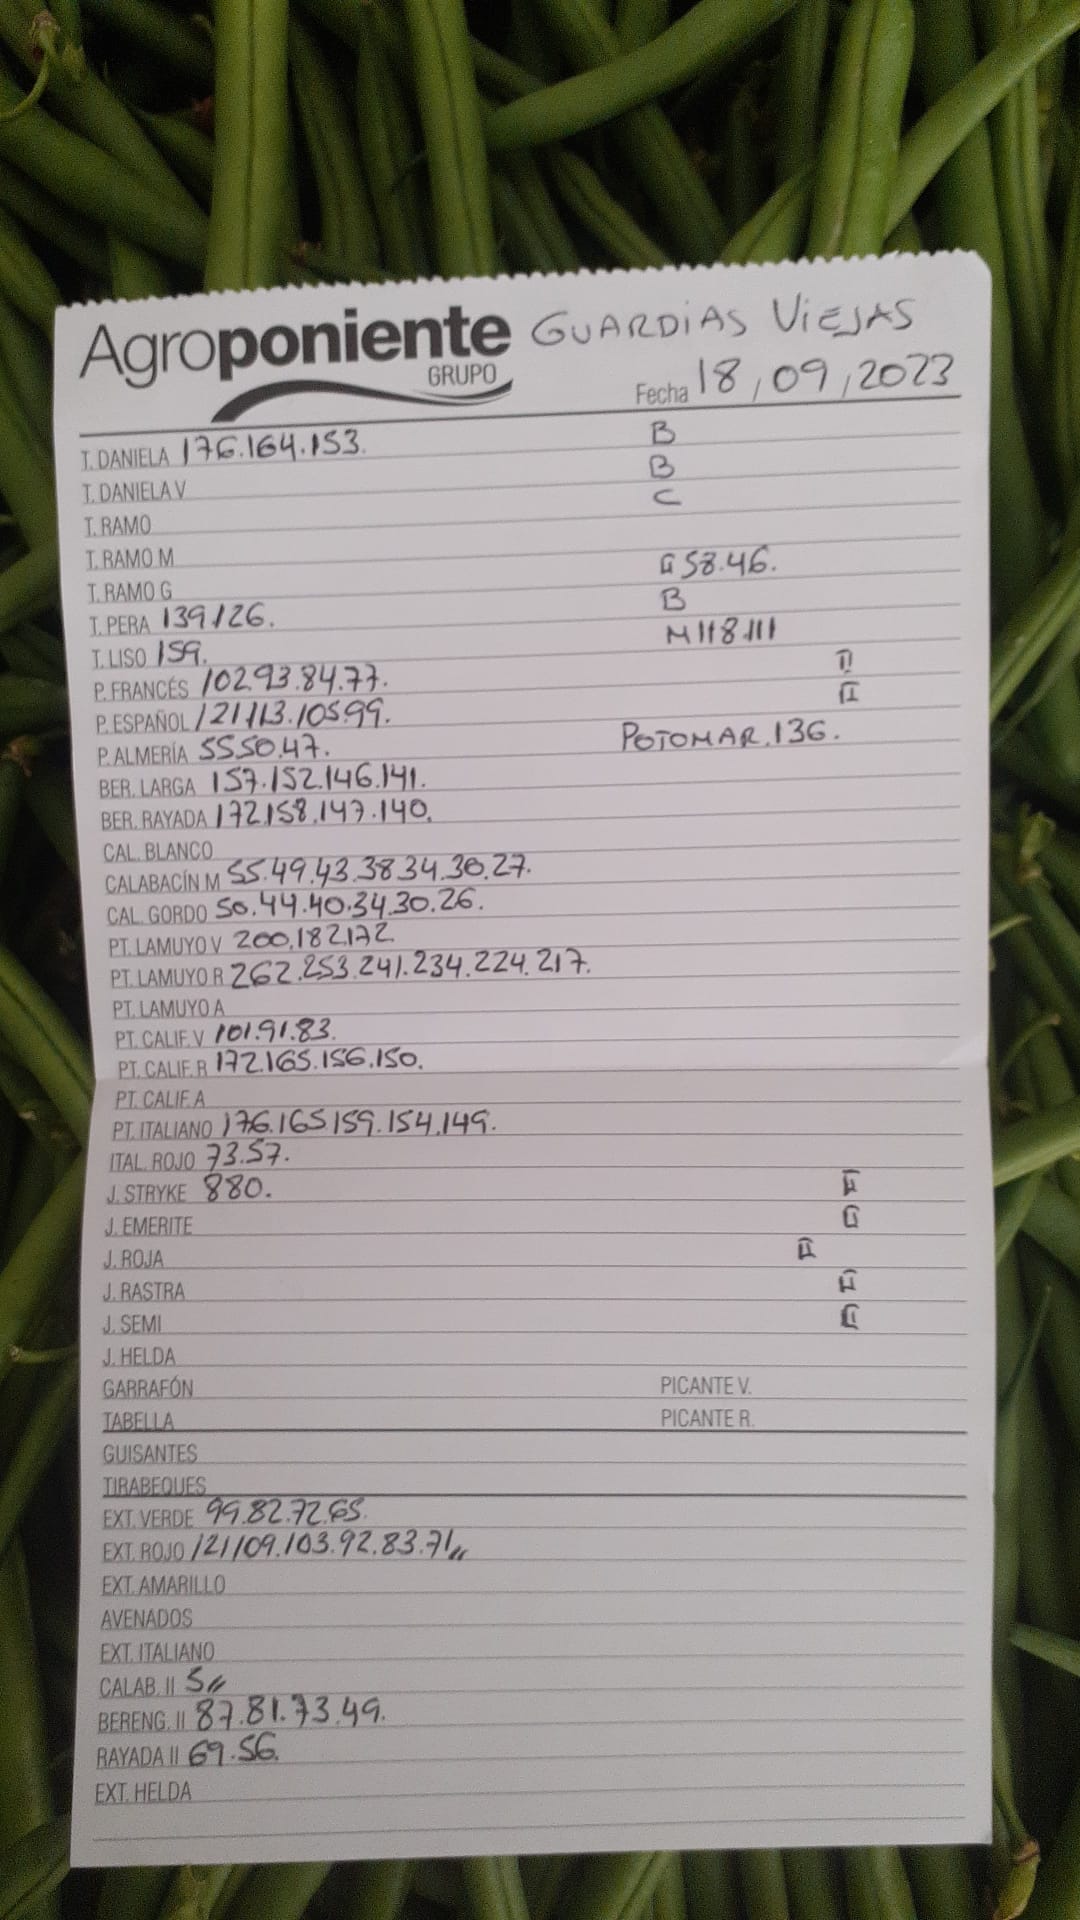 Agroponiente GUARDIAS VIEJAS
GRUPO
Fecha 18,09,2023
T. DANIELA 176.164.153. B
T. DANIELA V B
T. RAMO C
T. RAMO M
T. RAMO G G 58.46.
T. PERA 139126. B
T. LISO 159. M 118.111
P. FRANCÉS 102.93.84.77. II
P. ESPAÑOL 121.113.105.99. II
P. ALMERÍA 55.50.47. POTOMAR.136.
BER. LARGA 157.152.146.141.
BER. RAYADA 172.158.147.140.
CAL. BLANCO
CALABACÍN M 55.49.43.38.34.30.27.
CAL. GORDO 50.44.40.34.30.26.
PT. LAMUYO V 200.182.172
PT. LAMUYO R 262.253.241.234.224.217.
PT. LAMUYO A
PT. CALIF. V 101.91.83.
PT. CALIF. R 172.165.156.150.
PT. CALIF. A
PT. ITALIANO 176.165.159.154.149.
ITAL. ROJO 73.57.
J. STRYKE 880. II
J. EMERITE
J. ROJA II
J. RASTRA II
J. SEMI
J. HELDA
GARRAFÓN PICANTE V.
TABELLA PICANTE R.
GUISANTES
TIRABEQUES
EXT. VERDE 99.82.72.65.
EXT. ROJO 121.109.103.92.83.71,,
EXT. AMARILLO
AVENADOS
EXT. ITALIANO
CALAB. II 5,,
BERENG. II 87.81.73.49.
RAYADA II 69.56.
EXT. HELDA